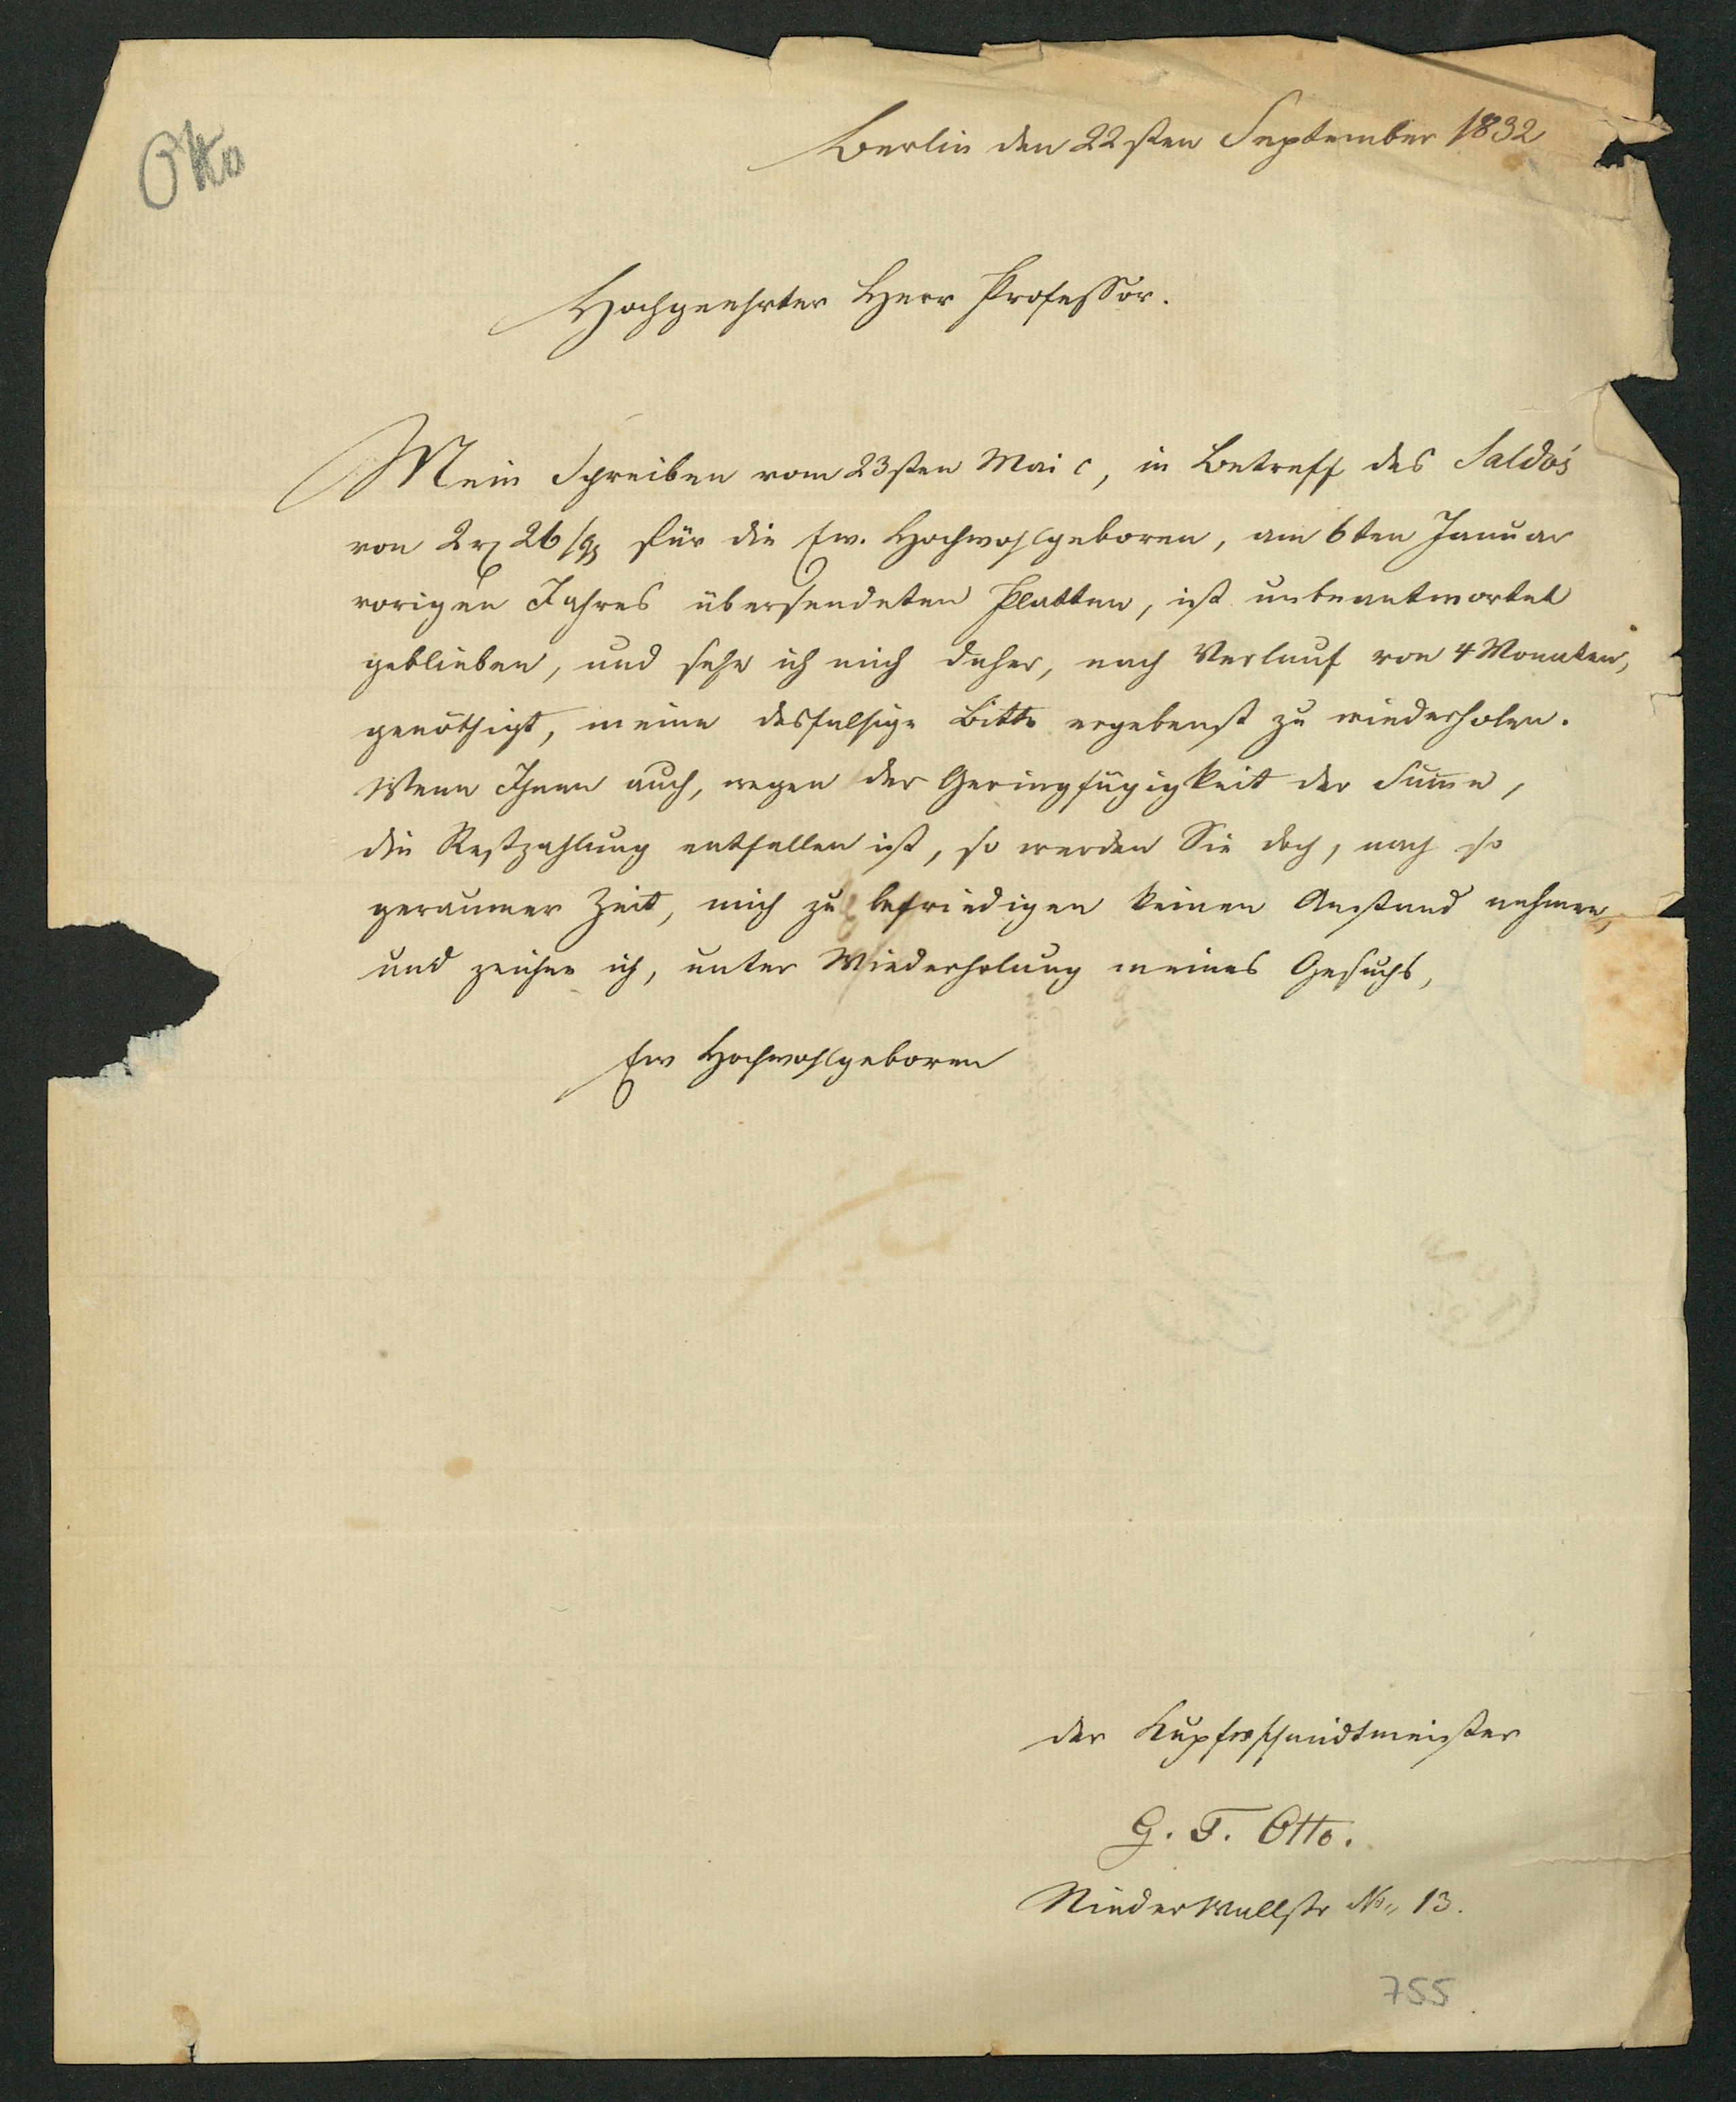 Otto
Berlin den 22sten September 1832
Hochgeehrter Herr Professor.
Mein Schreiben vom 23sten Mai c, in Betreff des Saldo's
von 2 rℓ 26 sgr für die Ew. Hochwohlgeboren, am 6ten Januar
vorigen Jahres übersendeten Platten, ist unbeantwortet
geblieben, und sehe ich mich daher, nach Verlauf von 4 Monaten,
genöthigt, meine desfalsige Bitte ergebenst zu wiederholen.
Wenn Ihnen auch, wegen der Geringfügigkeit der Sum̅e,
die Restzahlung entfallen ist, so werden Sie doch, nach so
geraumer Zeit, mich zu befriedigen keinen Anstand nehmen,
und zeichne ich, unter Wiederholung meines Gesuchs,
Ew Hochwohlgeboren
der Kupferschmidtmeister
G. F. Otto.
NiederWallstr No 13.
755